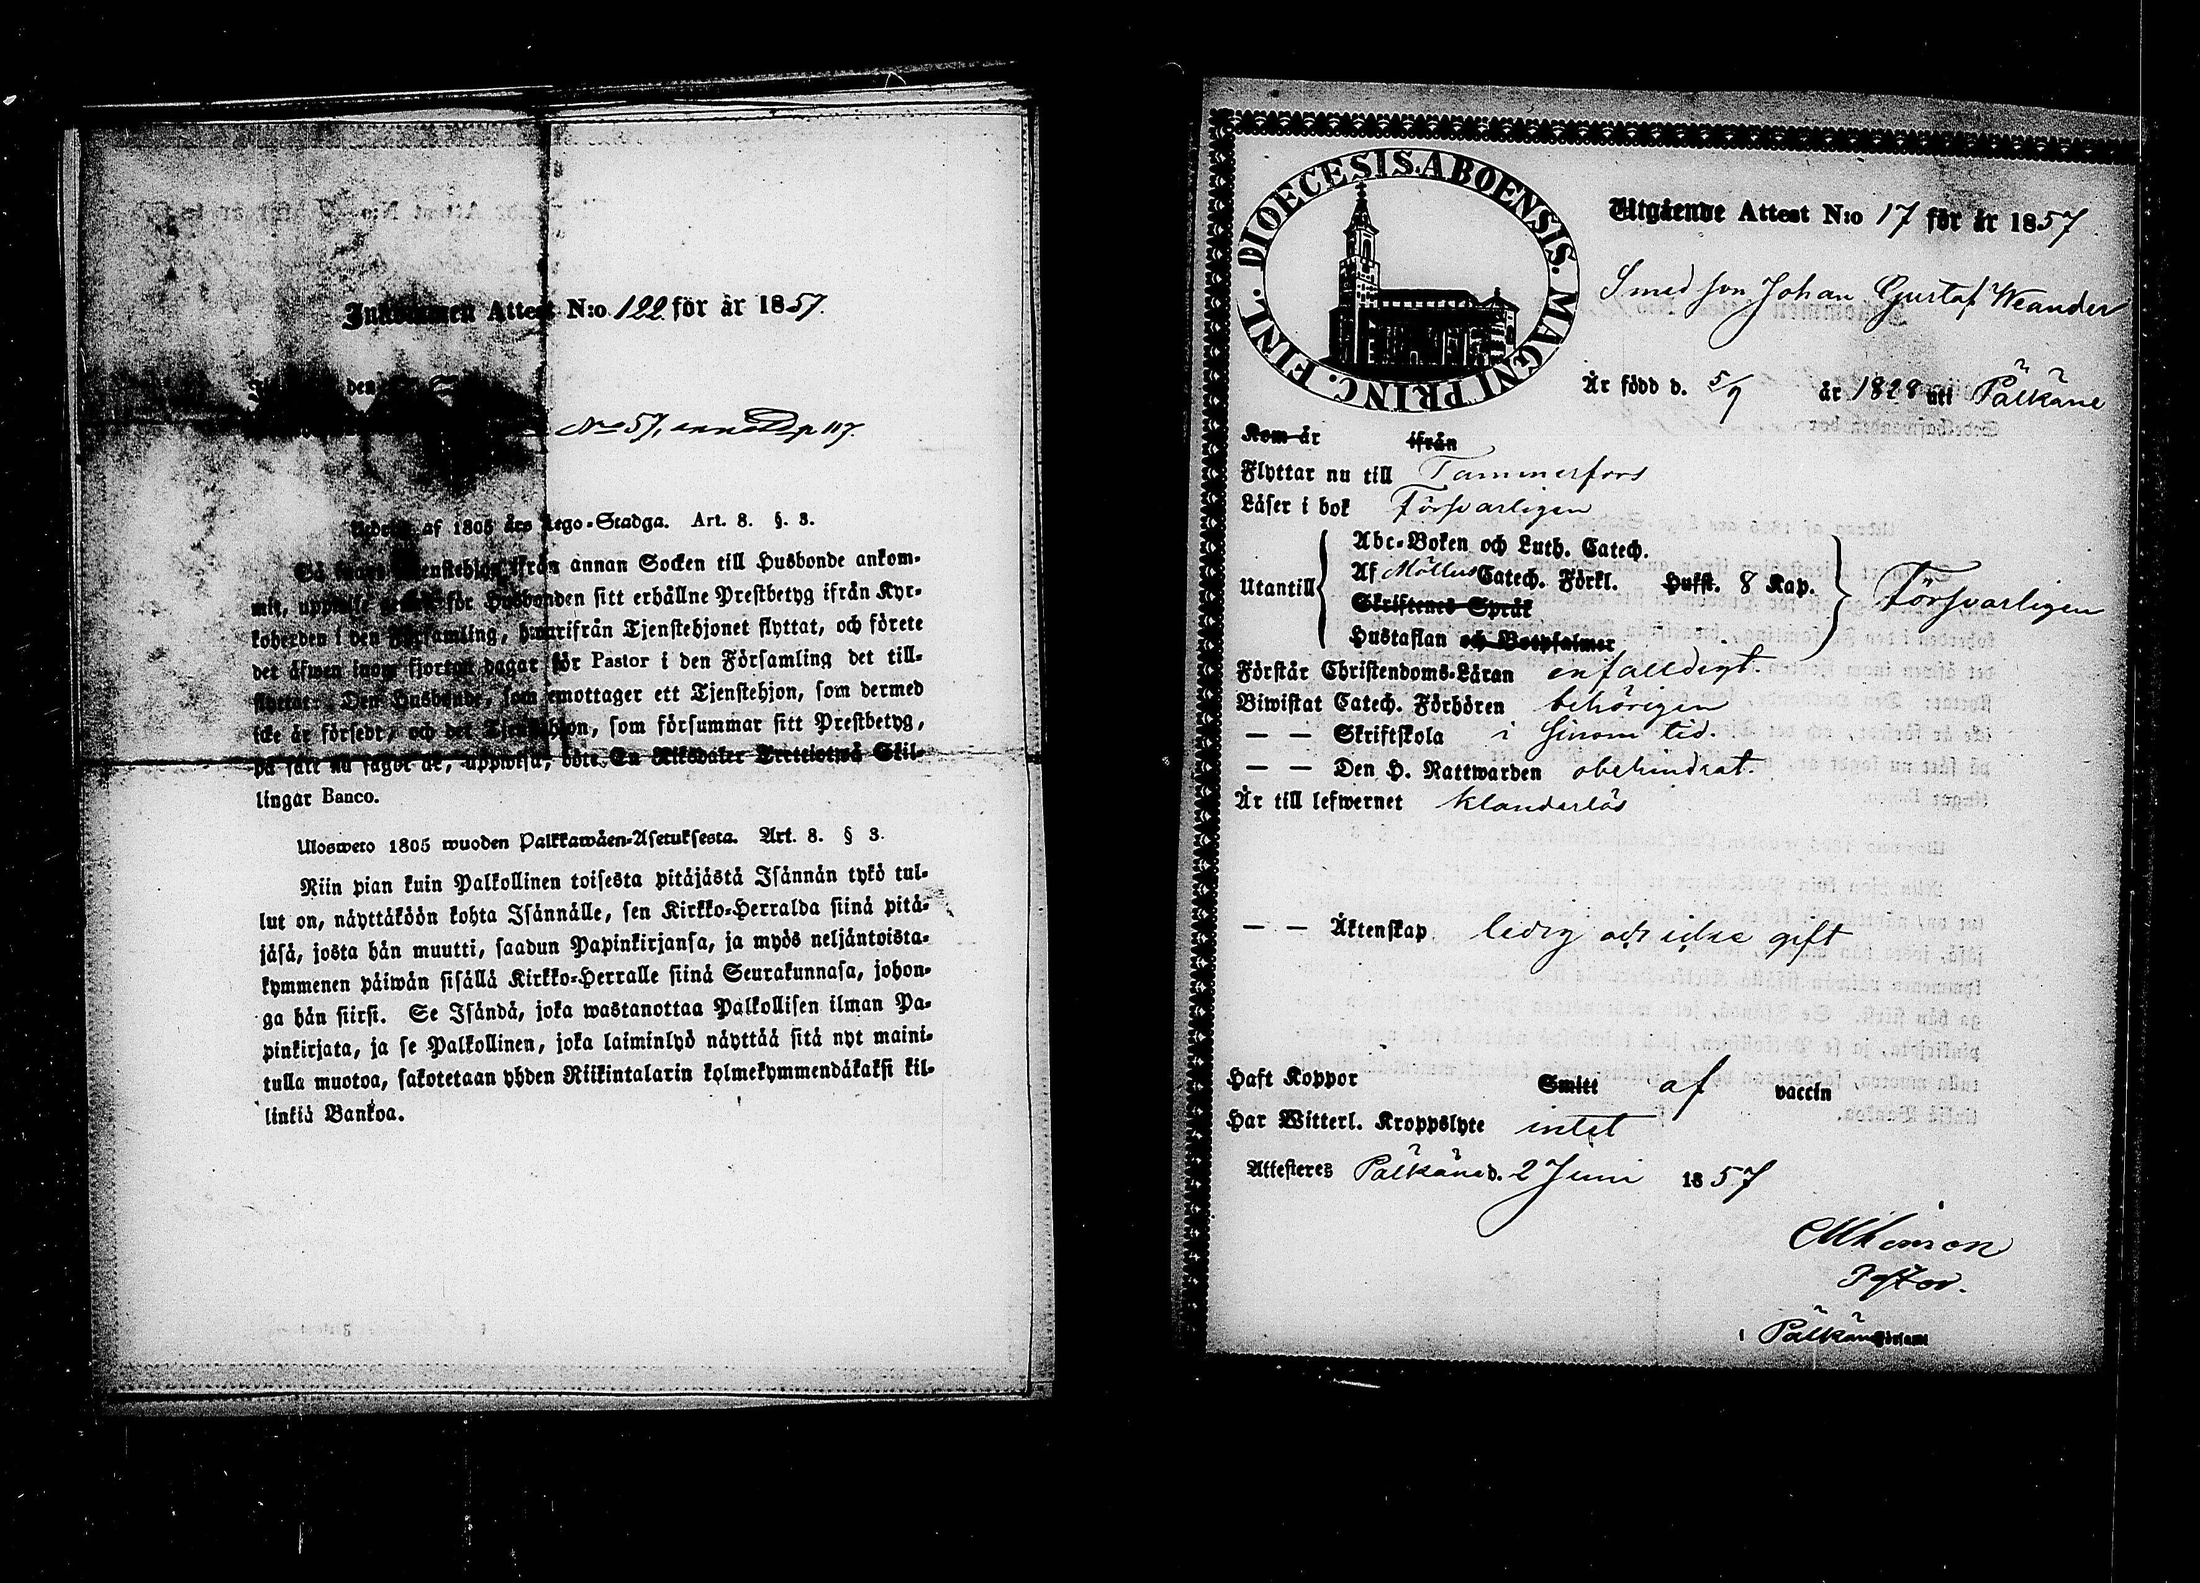 Inkommen Attest N:o 122 för år 1857.
den
No 57, p 117.
af 1805 års Lego-Stadga. Art. 8. §. 3.
Så snart Tjenstehjon ifrån annan Socken till Husbonde ankom-
mit, för Husbonden sitt erhållne Prestbetyg ifrån Kyr-
koherden i den Församling, hwarifrån Tjenstehjonet flyttat, och förete
det äfwen inom fjorton dagar för Pastor i den Församling det till-
flyttat. Den Husbonde, som emottager ett Tjenstehjon, som dermed
icke är försedt, och det Tjenstehjon, som försummar sitt Prestbetyg,
på sätt nu sagdt är, uppwisa, böte En Riksdaler Trettiotwå Skil-
lingar Banco.
Ulosweto 1805 wuoden Palkkawäen-Asetuksesta. Art. 8. § 3.
Niin pian kuin Palkollinen toisesta pitäjästä Isännän tykö tul-
lut on, näyttäköön kohta Isännälle, sen Kirkko-Herralda siinä pitä-
jäsä, josta hän muutti, saadun Papinkirjansa, ja myös neljäntoista-
kymmenen päiwän sisällä Kirkko-Herralle siinä Seurakunnasa, johon-
ga hän siirsi. Se Isändä, joka wastanottaa Palkollisen ilman Pa-
pinkirjata, ja se Palkollinen, joka laiminlyö näyttää sitä nyt maini-
tulla muotoa, sakotetaan yhden Riikintalarin kolmekymmendäkaksi kil-
linkiä Bankoa.
DIOECESIS. ABOENSIS. MAGNI PRINC. FINL.
Utgående Attest N:o 17 för år 1857
Smed son Johan Gustaf Weander
Är född d. 5/9 år 1828 uti Pälkäne
Kom år ifrån
Flyttar nu till Tammerfors
Läser i bok Försvarligen
Utantill
Abc-Boken och Luth. Catech.
Af Möllers Catech. Förkl. Husst. 8 Kap.
Skriftenes Språk
Hustaflan och Botpsalmer
Försvarligen
Förstår Christendoms-Läran enfalldigt.
Biwistat Catech. Förhören behörigen
— — Skriftskola i sinom tid.
— — Den H. Nattwarden obehindrat.
Är till lefwernet klanderlös
— — Äktenskap ledig och icke gift
Haft Koppor Smitt af vaccin
Har Witterl. Kroppslyte intet
Attesteres Pälkäne d. 2 Juni 1857
i Pälkäne Församl